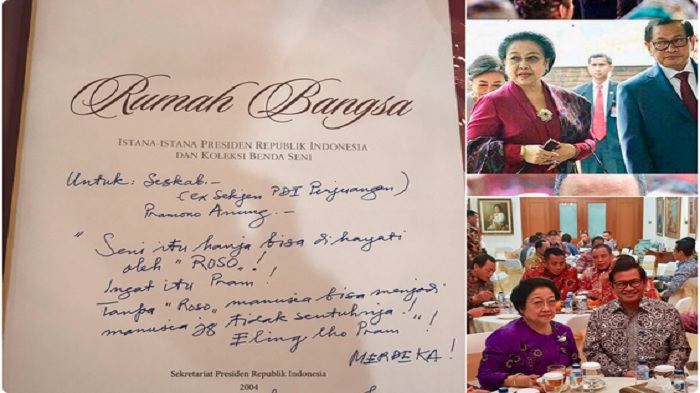 Rumah Bangsa
ISTANA-ISTANA PRESIDEN REPUBLIK INDONESIA
DAN KOLEKSI BENDA SENI
Untuk: Seskab.-
(ex Sekjen PDI Perjuangan)
Pramono Anung.-
"Seni itu hanja bisa di hayati
oleh "ROSO"!
Ingat itu Pram!
Tanpa "Roso" manusia bisa menjadi
manusia yg tidak sentuhnja!!
Eling lho Pram"!
MERDEKA!
Sekretariat Presiden Republik Indonesia
2004